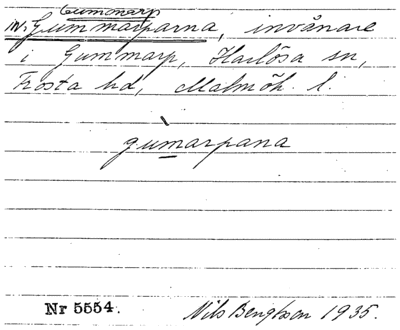 Gummarp
N. Gummarparna, invånare
i Gummarp, Harlösa sn,
Frosta hd, Malmöh. l.
gùmarpana
Nr 5554. Nils Bengtson 1935.